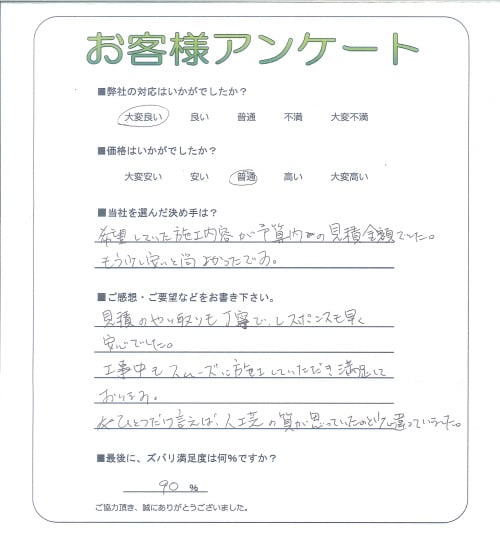 お客様アンケート
■弊社の対応はいかがでしたか？
大変良い 良い 普通 不満 大変不満
■価格はいかがでしたか？
大変安い 安い 普通 高い 大変高い
■当社を選んだ決め手は？
希望していた施工内容が予算内での見積金額でした。
もう少し安いと尚よかったです。
■ご感想・ご要望などをお書き下さい。
見積のやり取りも丁寧で、レスポンスも早く
安心でした。
工事中もスムーズに施工していただき満足して
おります。
※ひとつだけ言えば、人工芝の質が思っていたのと少し違っていました。
■最後に、ズバリ満足度は何％ですか？
90 %
ご協力頂き、誠にありがとうございました。